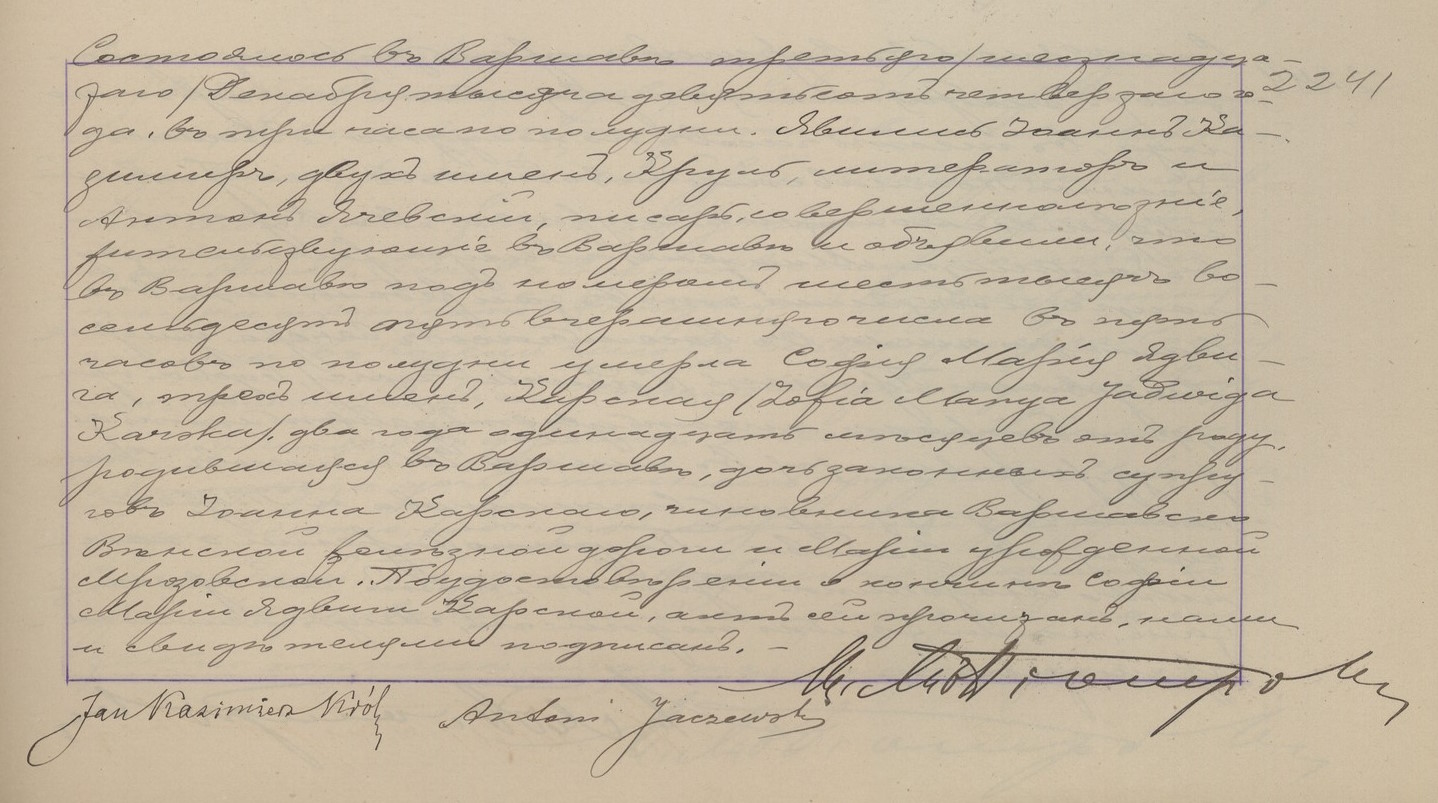 Состоялось въ Варшавѣ третьяго/шестнадца-
таго/Декабря тысяча девятьсотъ четвертаго го- 2241
да, въ три часа по полудни. Явились Іоаннъ Ка-
зимиръ, двухъ именъ, Круль, литераторъ и
Антонъ Ячевскій, писарь, совершеннолѣтніе,
жительствующіе въ Варшавѣ и объявили, что
въ Варшавѣ подъ номеромъ шесть тысячъ во-
семьдесятъ пять вчерашняго числа въ пять
часовъ по полудни умерла Софія Марія Ядви-
га, трехъ именъ, Карская /Zofia Marya Jadwiga
Karska/, два года одинадцать мѣсяцевъ отъ роду,
родившаяся въ Варшавѣ, дочь законныхъ супру-
говъ Іоанна Карскаго, чиновника Варшавско
Вѣнской желѣзной дороги и Маріи урожденной
Мрозовской. По удостовѣреніи о кончинѣ Софіи
Маріи Ядвиги Карской, актъ сей прочитанъ, нами
и свидѣтелями подписанъ. -
Jan Kazimierz Król Antoni Jaczewski